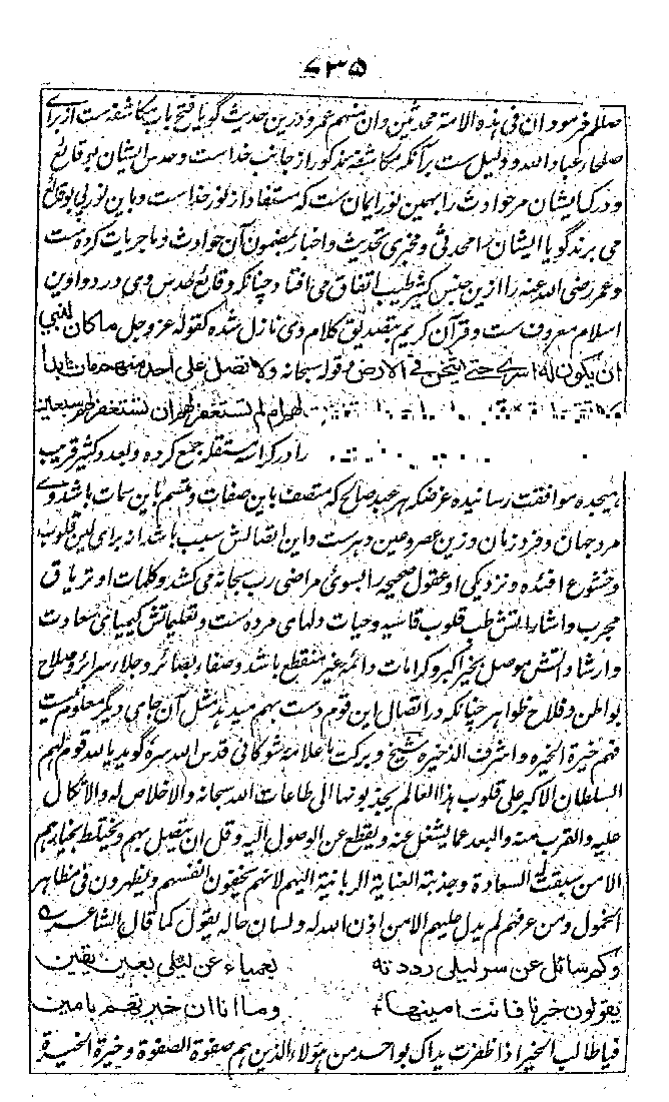 ۷۳۵
صللم فرمود ان فی هذه الامة محدثین وان منهم عمر و درین حدیث گویا فتح باب مکاشفه است از برای
صلحاء عباد الله و دلیل ست بر آنکه مکاشفه مذکور از جانب خدا است و حدس ایشان بوقائع
و درک ایشان مر حوادث را بهمین نور ایمان ست که مستفاد از نور خدا است و باین نور پی بوقائع
می برند گویا ایشان را محدثی و مخبری تحدیث و اخبار بمضمون آن حوادث و ماجریات کرده ست
و عمر رضی الله عنه را ازین جنس کثیر طیب اتفاق می افتاد چنانکه وقائع حدس وی در دواوین
اسلام معروف ست و قرآن کریم بتصدیق کلام وی نازل شده کقوله عز و جل ما کان لنبی
ان یکون له اسری حتی یثخن فی الارض و قوله سبحانه ولا تصل علی احد منهم مات ابدا
لهم ام لم تستغفر لهم ان تستغفر لهم سبعین
را در کراسه مستقله جمع کرده و بعدد کثیر قریب
هیجده موافقت رسانیده غرضکه هر عبد صالح که متصف باین صفات و متسم باین سمات باشد وی
مرد جهان و فرد زمان و زین عصر و عین دهر ست و این اتصالش سبب باشد از برای لین قلوب
و خشوع افئده و نزدیکی او عقول صحیحه را بسوی مراضی رب سبحانه می کشد و کلمات او تریاق
مجرب و اشاراتش طب قلوب قاسیه و حیات دلهای مرده ست و تعلیماتش کیمیای سعادت
و ارشاداتش موصل بخیر اکبر و کرامات دائمه غیر منقطع باشد و صفاء بصائر و جلاء سرائر و صلاح
بواطن و فلاح ظواهر چنانکه در اتصال این قوم دست بهم میدهد مثل آن جای دیگر معلوم نیست
فهم خیرة الخیره و اشرف الذخیره شیخ و برکت ما علامه شوکانی قدس الله سره گوید یا لله قوم لهم
السلطان الاکبر علی قلوب هذا العالم یجذبونها الی طاعات الله سبحانه والاخلاص له والاتکال
علیه والقرب منه والبعد عما یشغل عنه ویقطع عن الوصول الیه وقل ان یتصل بهم ویختلط بخیارهم
الا من سبقت له السعادة وجذبته العنایة الربانیة الیهم لانهم یخفون انفسهم ویظهرون فی مظاهر
الخمول ومن عرفهم لم یدل علیهم الا من اذن الله له ولسان حاله یقول کما قال الشاعر
وکم سائل عن سر لیلی رددته بعمیاء عن لیلی بعین یقین
یقولون خبرنا فانت امینها وما انا ان خبرتهم بامین
فیا طالب الخیر اذا ظفرت یداک بواحد من هولاء الذین هم صفوة الصفوة وخیرة الخیرة